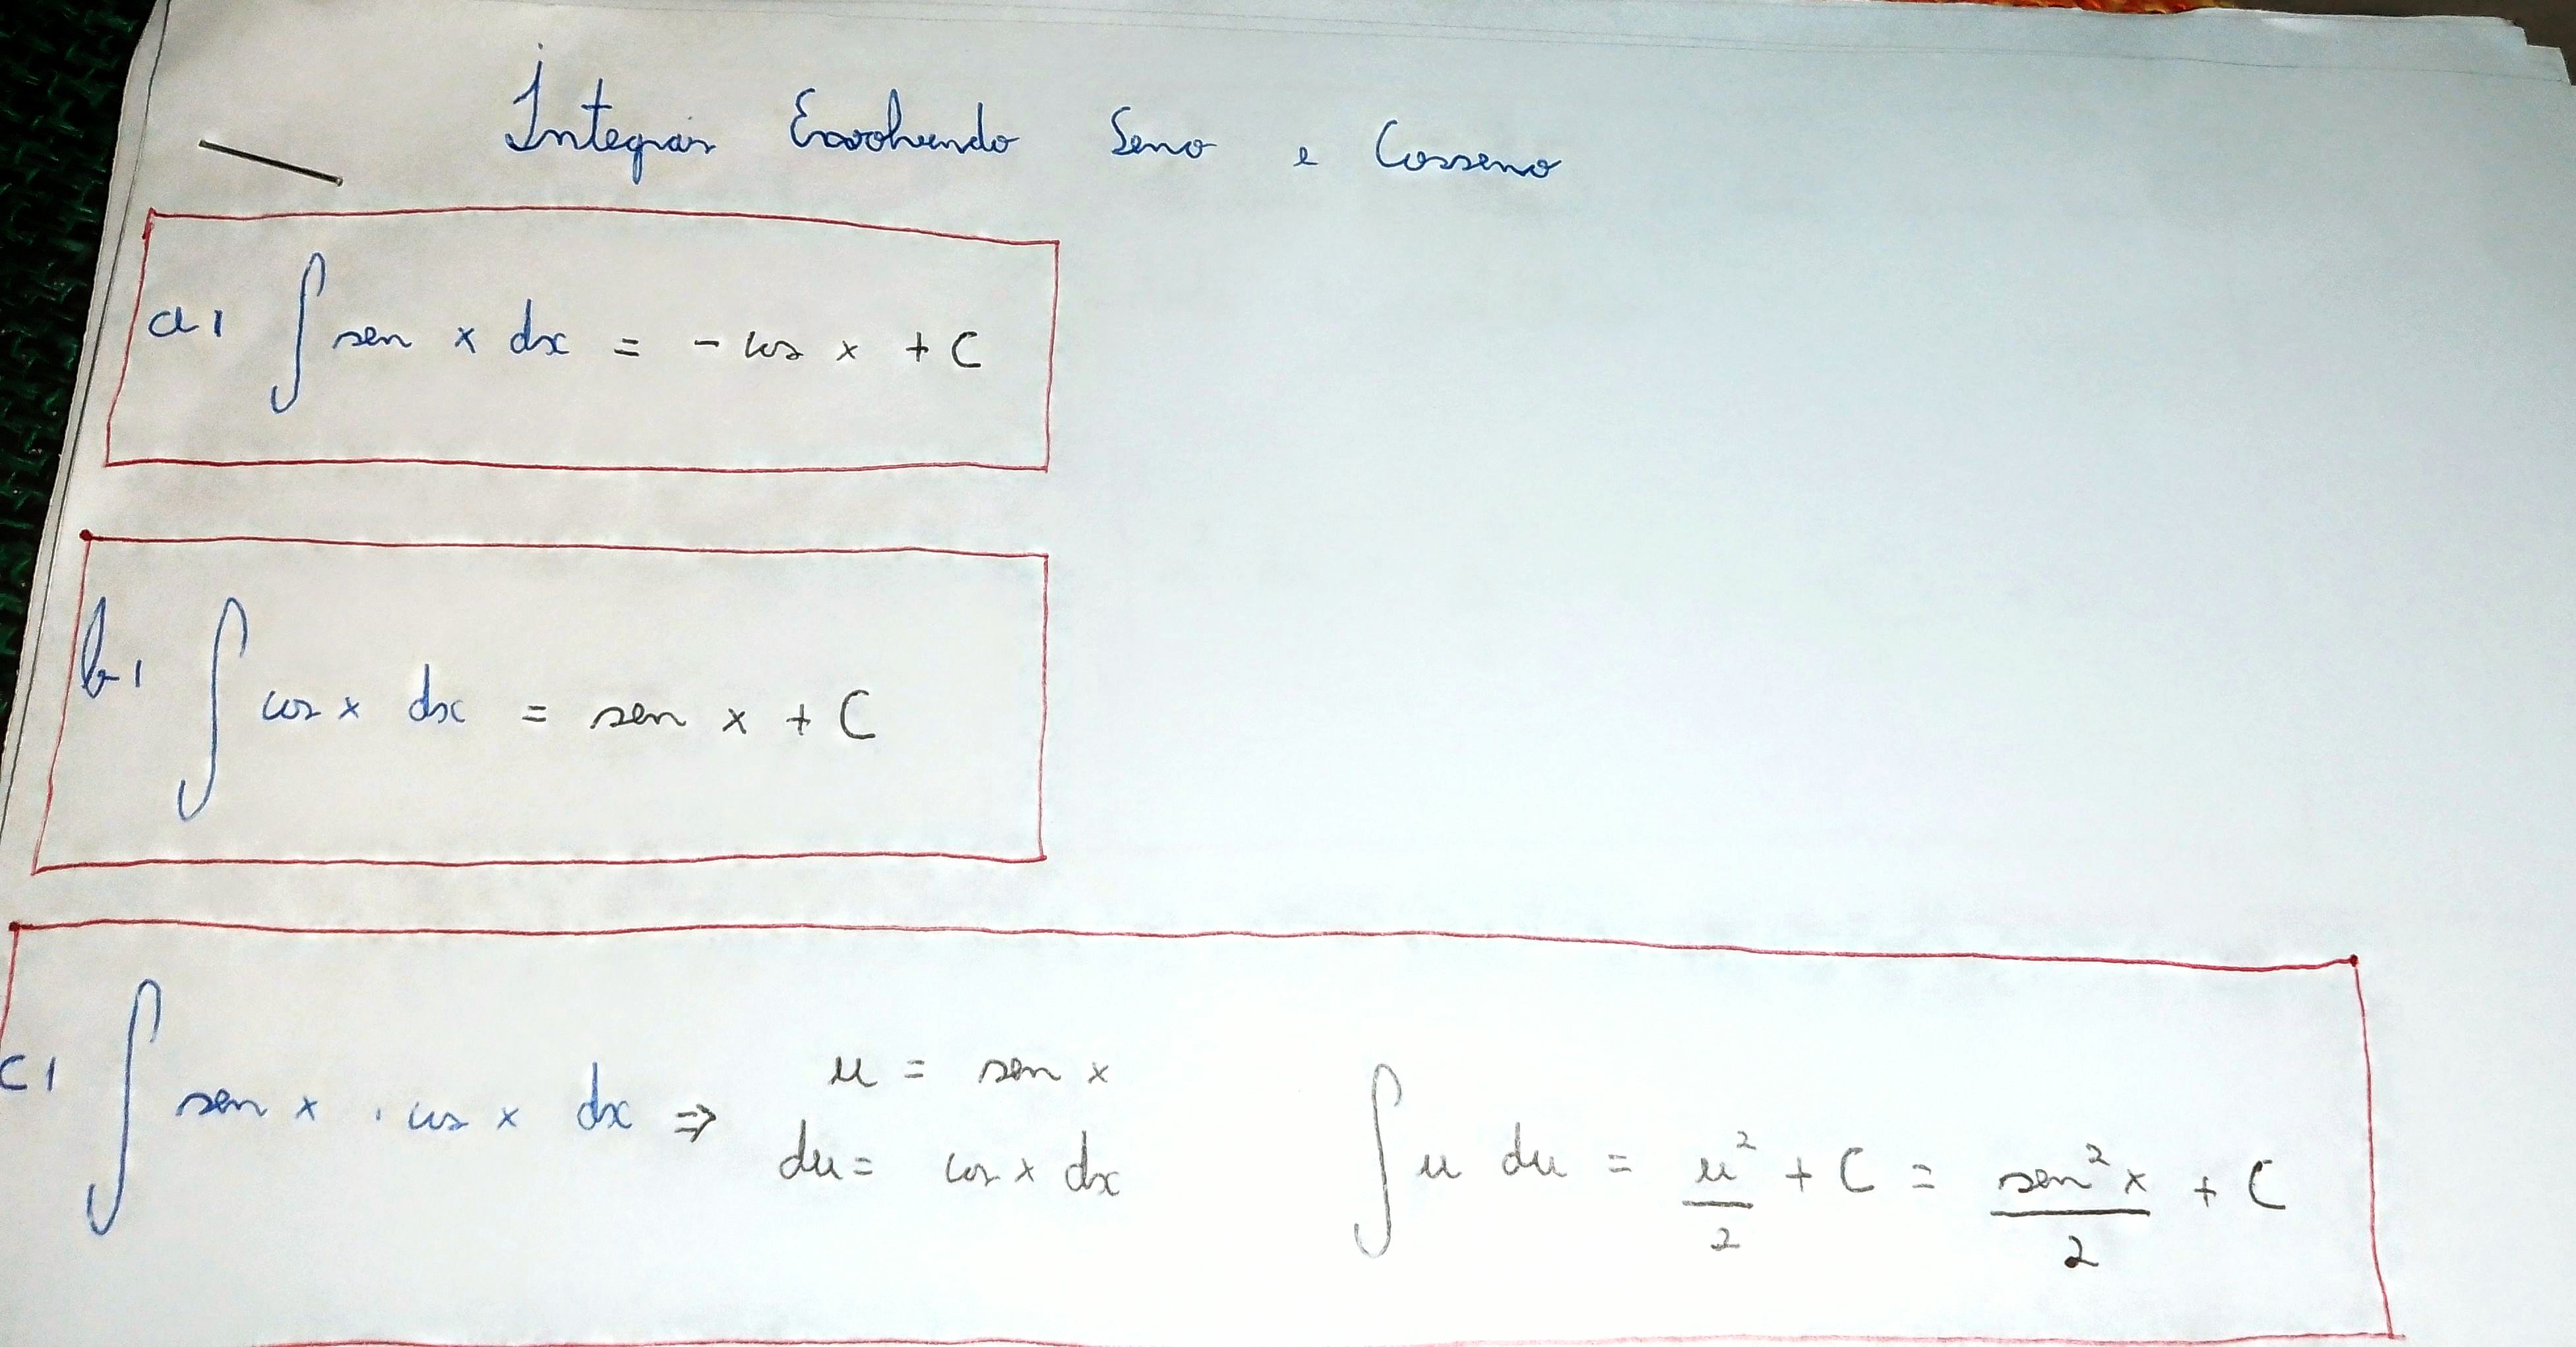 Integrais Envolvendo Seno e Cosseno
a) ∫ sen x dx = - cos x + C
b) ∫ cos x dx = sen x + C
c) ∫ sen x . cos x dx ⇒ u = sen x
du = cos x dx
∫ u du = u²/2 + C = sen² x/2 + C